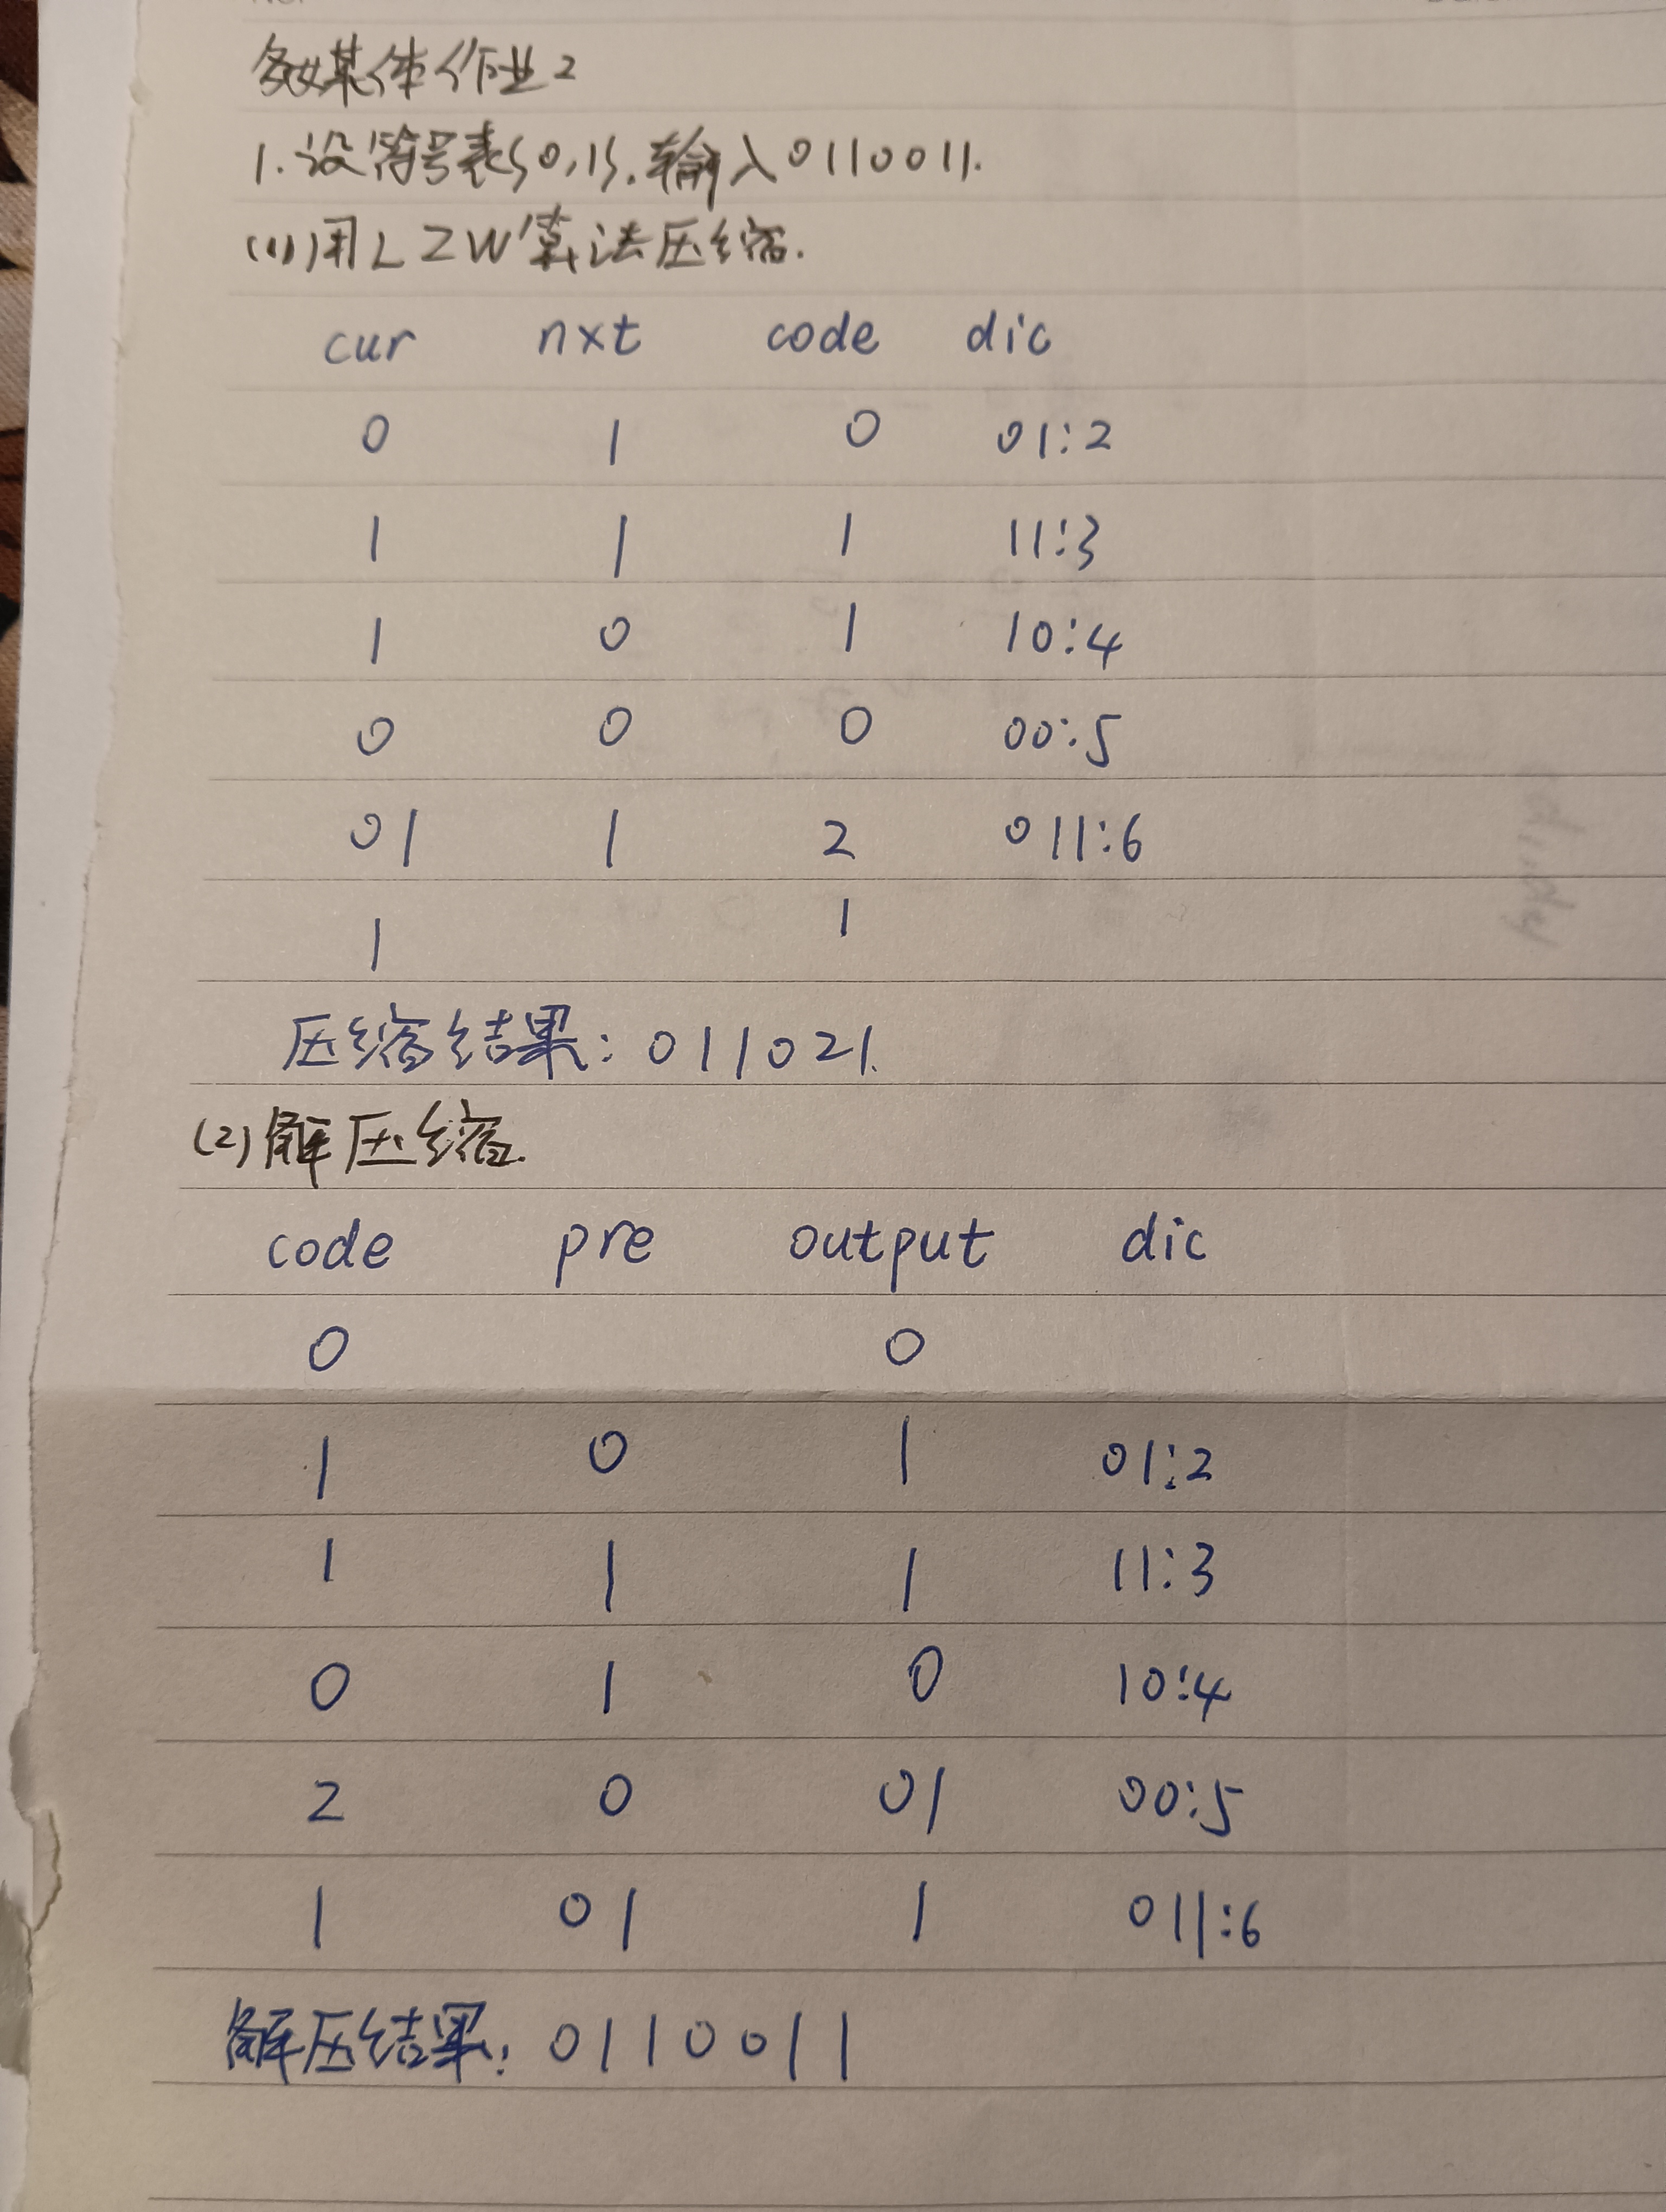 多媒体作业2
1.设符号表{0,1}.输入0110011.
(1)用LZW算法压缩.
cur nxt code dic
0 1 0 01:2
1 1 1 11:3
1 0 1 10:4
0 0 0 00:5
01 1 2 011:6
1 1
压缩结果:011021.
(2)解压缩.
code pre output dic
0 0
1 0 1 01:2
1 1 1 11:3
0 1 0 10:4
2 0 01 00:5
1 01 1 011:6
解压结果:0110011